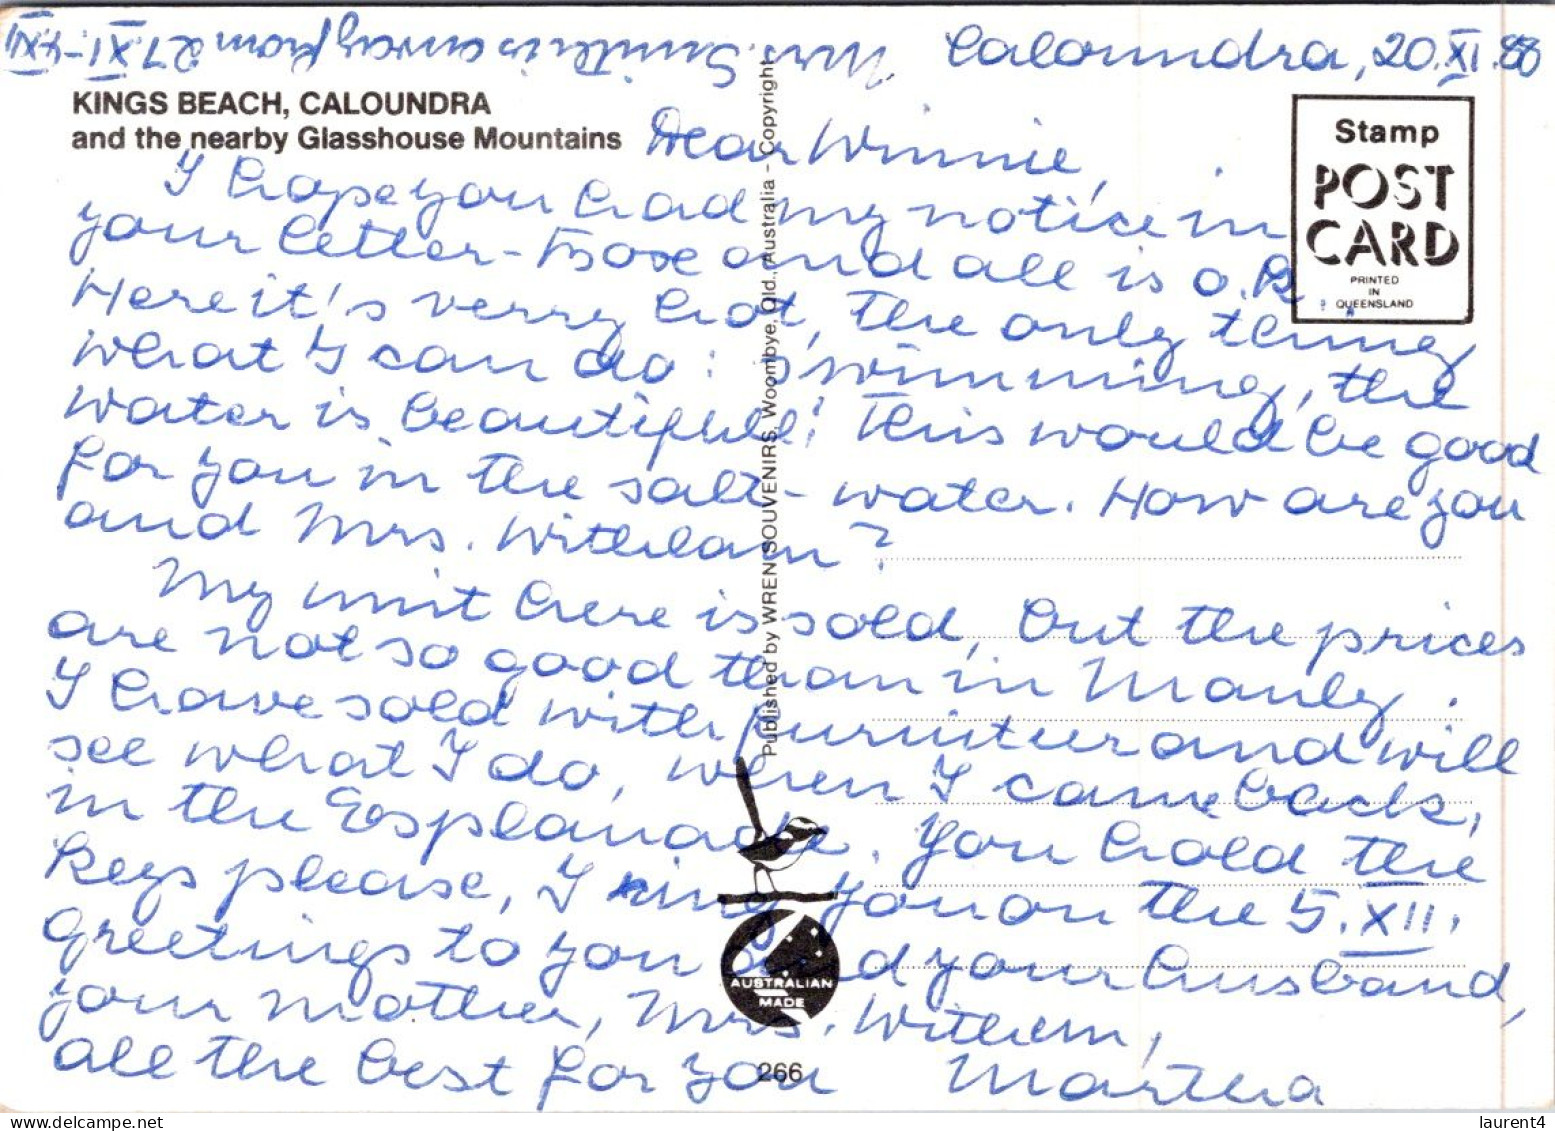 Mrs. Smith is away from 27.XI.-4.XII
Caloundra, 20.XI.88
KINGS BEACH, CALOUNDRA
and the nearby Glasshouse Mountains
Stamp
POST
CARD
PRINTED
IN
QUEENSLAND
Dear Winnie,
I hope you had my notice in
your letter-box and all is o.k.
Here it's very hot, the only thing
what I can do: swimming, the
water is beautiful! This would be good
for you in the salt-water. How are you
and Mrs. Witham?
My unit here is sold, but the prices
are not so good than in Manly.
I have sold with furnitur and will
see what I do, when I came back,
in the Esplanade. You hold the
keys please, I ring you on the 5.XII.
Greetings to you and your husband,
your mother, Mrs. Withem,
all the best for you Martha
Published by WREN SOUVENIRS, Woombye, Qld., Australia - Copyright
AUSTRALIAN
MADE
266
laurent4